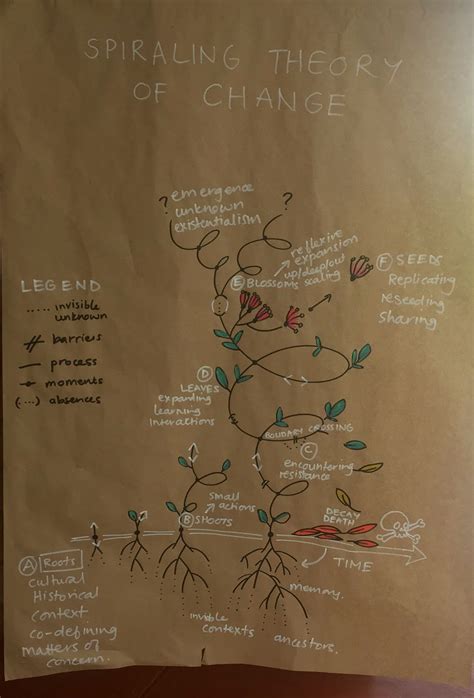 SPIRALING THEORY
OF CHANGE
?
?
emergence
unknown
existentialism
reflexive
expansion
up/deep/out
scaling
E BLOSSOMS
F SEEDS
Replicating
reseeding
sharing
LEGEND
invisible
unknown
barriers
process
moments
(...) absences
D
LEAVES
expanding
learning
interactions
BOUDARY CROSSING
C
encountering
resistance
small
actions
B SHOOTS
DECAY
DEATH
TIME
A Roots
Cultural
Historical
context
co-defining
matters of
concern.
invisible
contexts
memory.
ancestors.